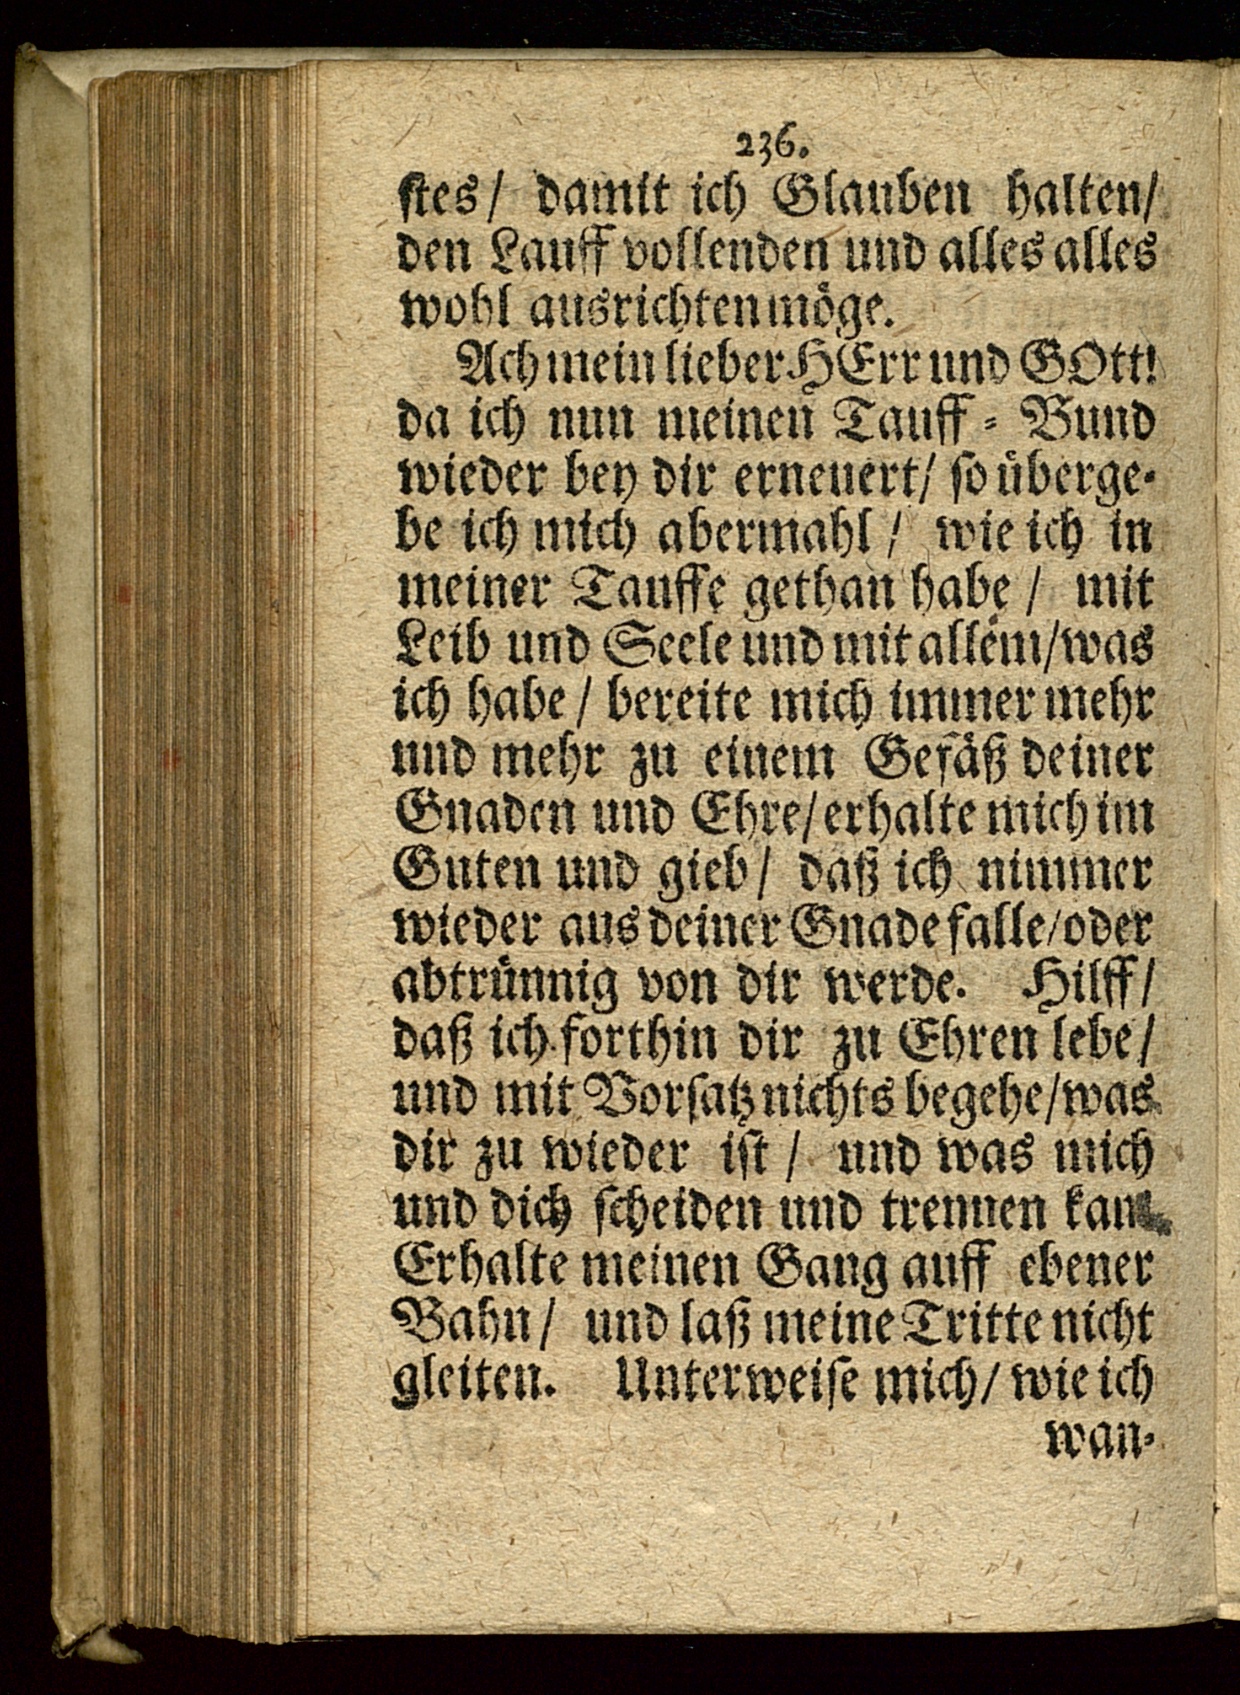 236.
ſtes/ damit ich Glauben halten/
den Lauff vollenden und alles alles
wohl ausrichten möge.
Ach mein lieber HErr und GOtt!
da ich nun meinen Tauff-Bund
wieder bey dir erneuert/ ſo überge-
be ich mich abermahl/ wie ich in
meiner Tauffe gethan habe/ mit
Leib und Seele und mit allem/ was
ich habe/ bereite mich immer mehr
und mehr zu einem Gefäß deiner
Gnaden und Ehre/ erhalte mich im
Guten und gieb/ daß ich nimmer
wieder aus deiner Gnade falle/ oder
abtrünnig von dir werde. Hilff/
daß ich forthin dir zu Ehren lebe/
und mit Vorſatz nichts begehe/ was
dir zu wieder iſt/ und was mich
und dich ſcheiden und trennen kan.
Erhalte meinen Gang auff ebener
Bahn/ und laß meine Tritte nicht
gleiten. Unterweiſe mich/ wie ich
wan-